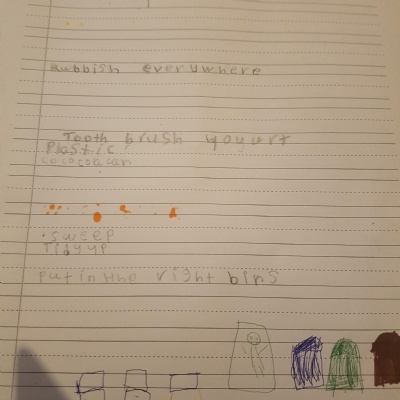 Rubbish everywhere
Tooth brush yoyurt
Plastic
cococolacan
.sweep
Tidy up
put in the right bins